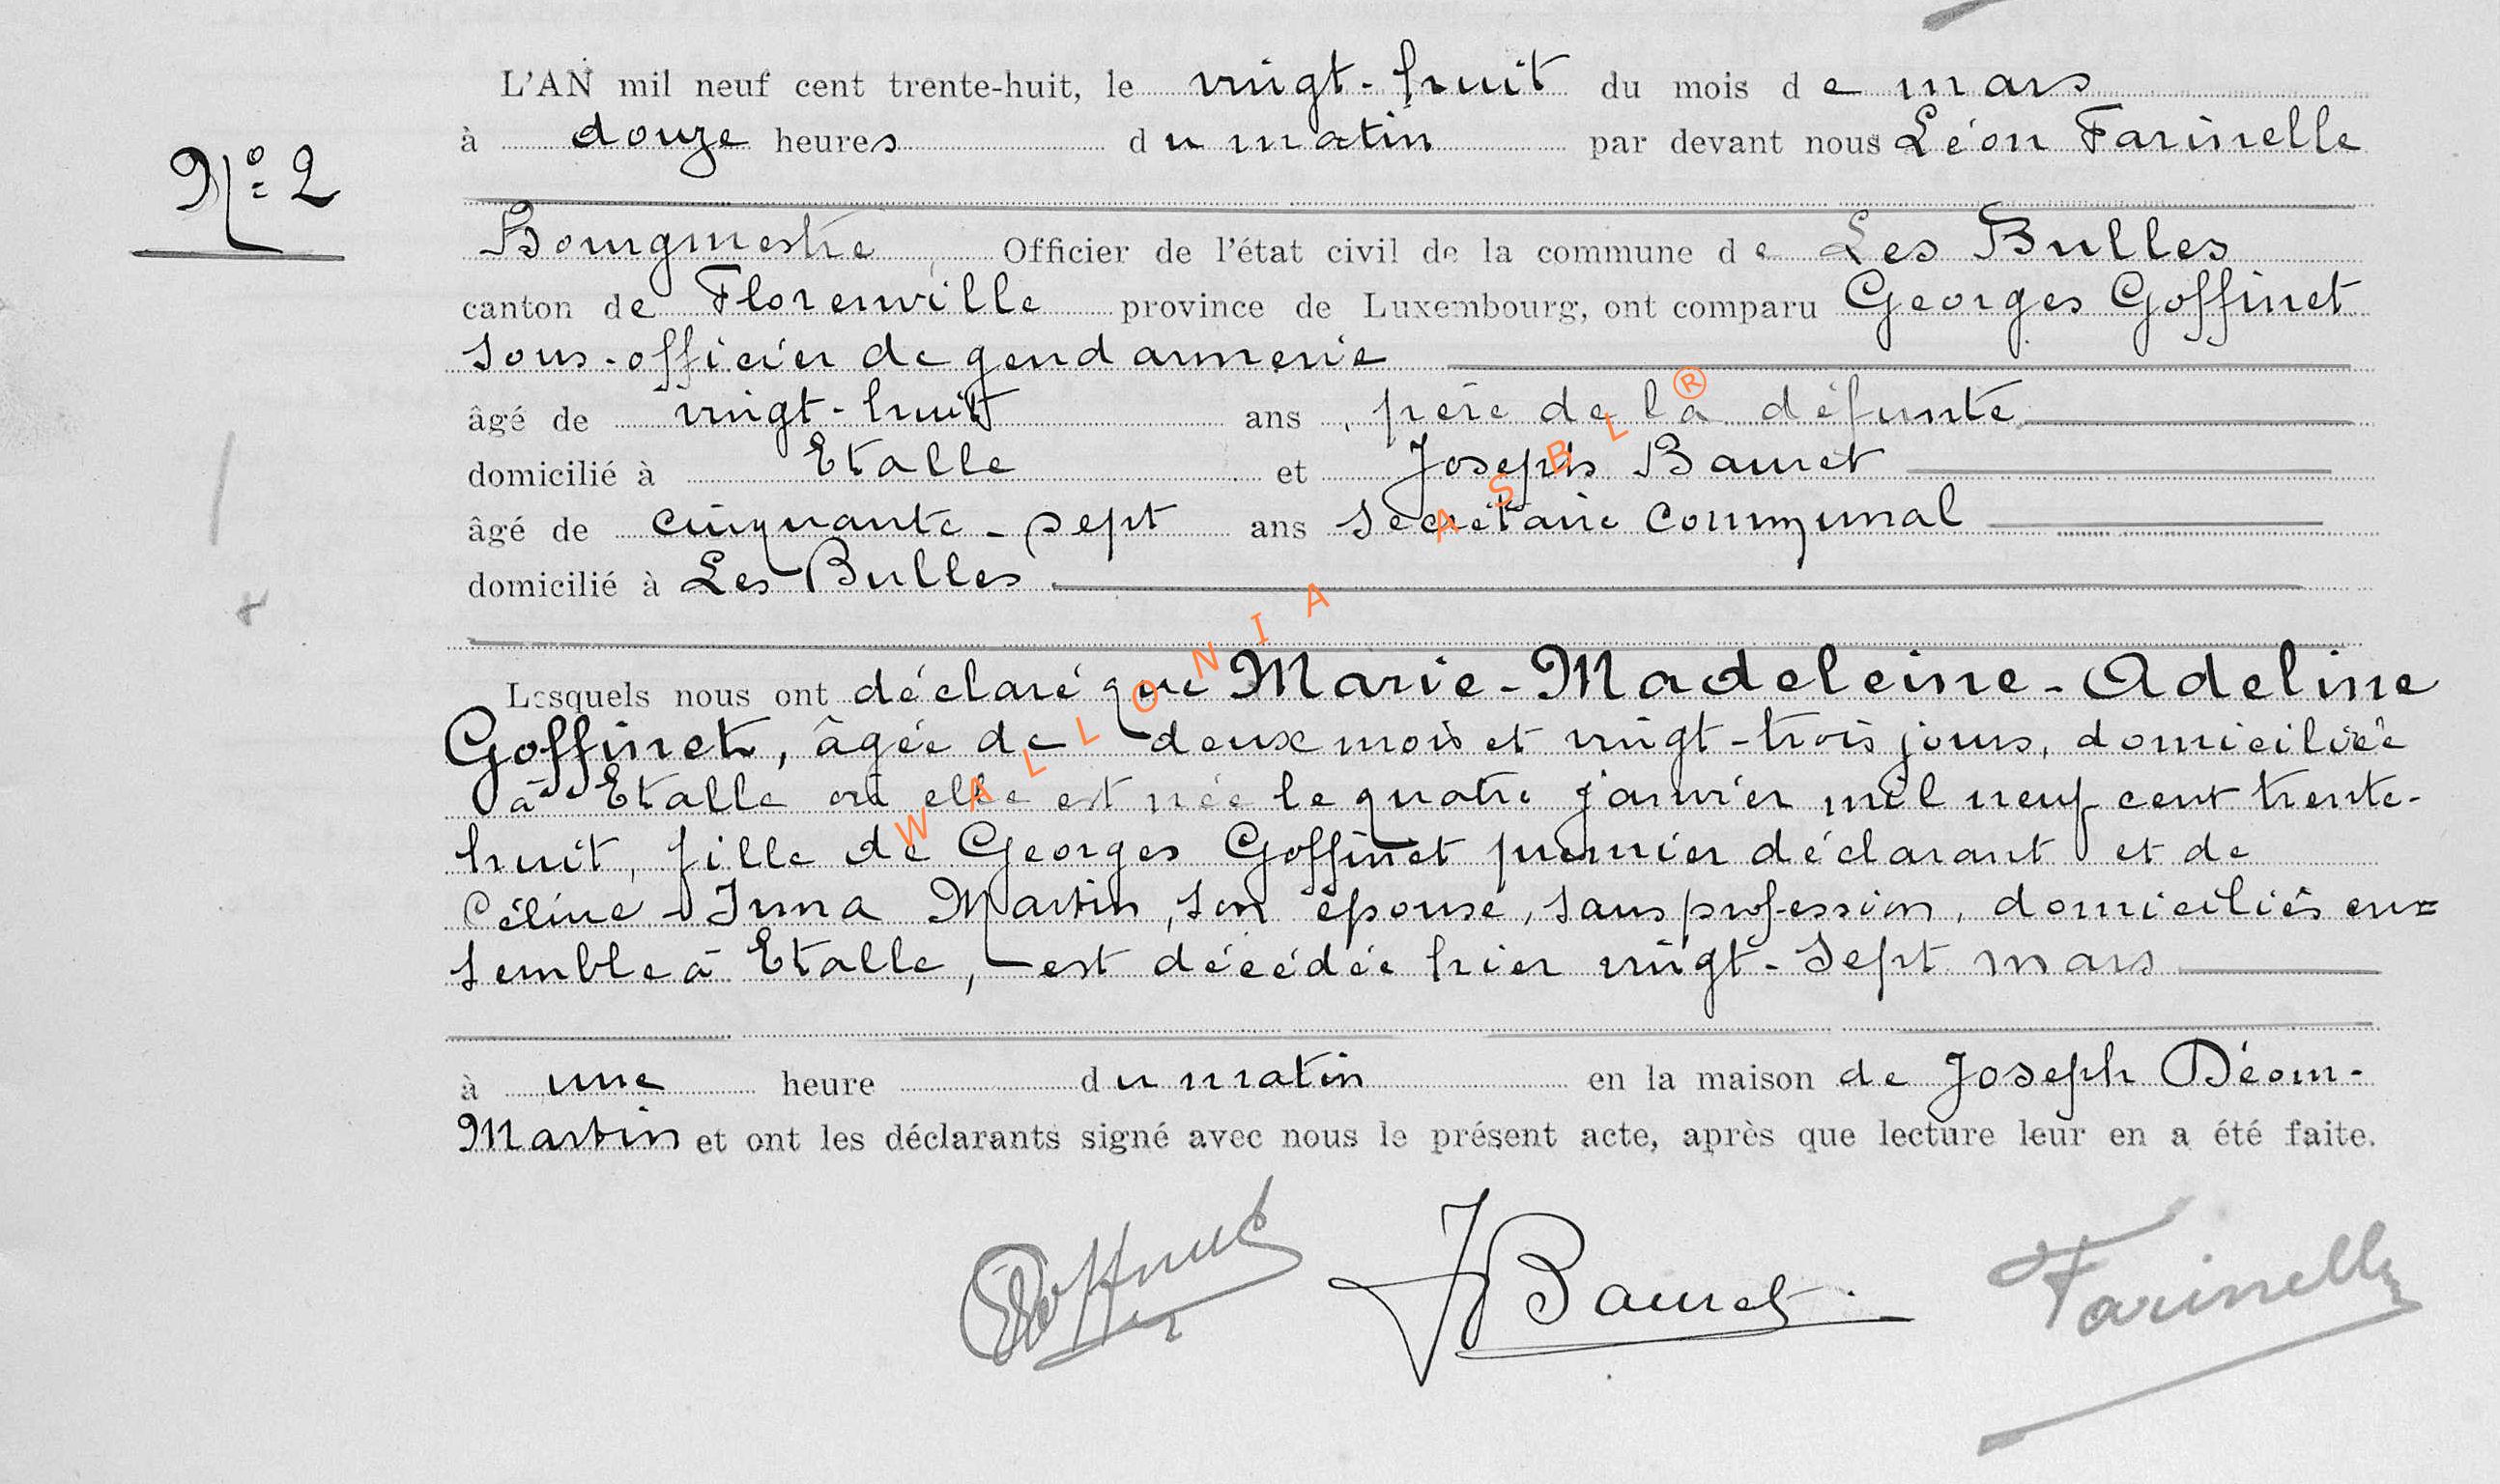 L'AN mil neuf cent trente-huit, le vingt-huit du mois de mars
à douze heures du matin par devant nous Léon Farinelle
Nº 2
Bourgmestre Officier de l'état civil de la commune de Les Bulles
canton de Florenville province de Luxembourg, ont comparu Georges Goffinet
sous-officier de gendarmerie
âgé de vingt-huit ans, père de la défunte
domicilié à Etalle et Joseph Bauret
âgé de cinquante-sept ans secrétaire communal
domicilié à Les Bulles
Lesquels nous ont déclaré que Marie-Madeleine-Adeline
Goffinet, âgée de deux mois et vingt-trois jours, domiciliée
à Etalle où elle est née le quatre janvier mil neuf cent trente-
huit, fille de Georges Goffinet premier déclarant et de
Céline-Irma Martin, son épouse, sans profession, domiciliés en=
semble à Etalle, est décédée hier vingt-sept mars
à une heure du matin en la maison de Joseph Déom-
Martin et ont les déclarants signé avec nous le présent acte, après que lecture leur en a été faite.
Goffinet JBauret Farinelle
WALLONIA ASBL ®